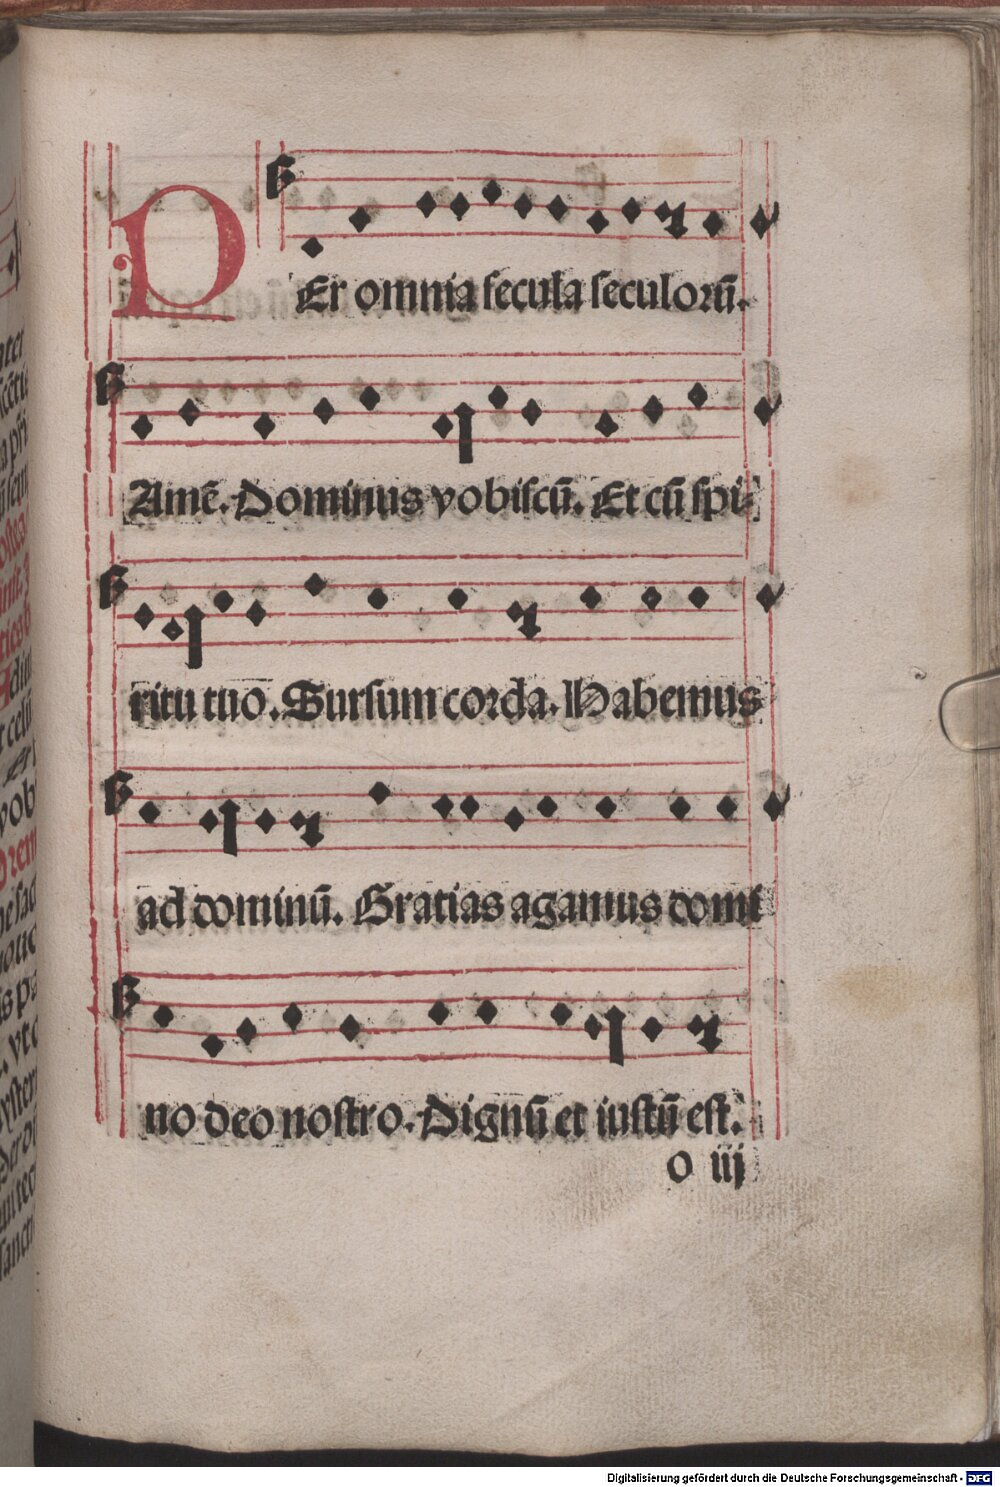 PEr omnia secula seculorū.
Amē. Dominus vobiscū. Et cū spi-
ritu tuo. Sursum corda. Habemus
ad dominū. Gratias agamus domi
no deo nostro. Dignū et iustū est.
o iij
Digitalisierung gefördert durch die Deutsche Forschungsgemeinschaft - DFG